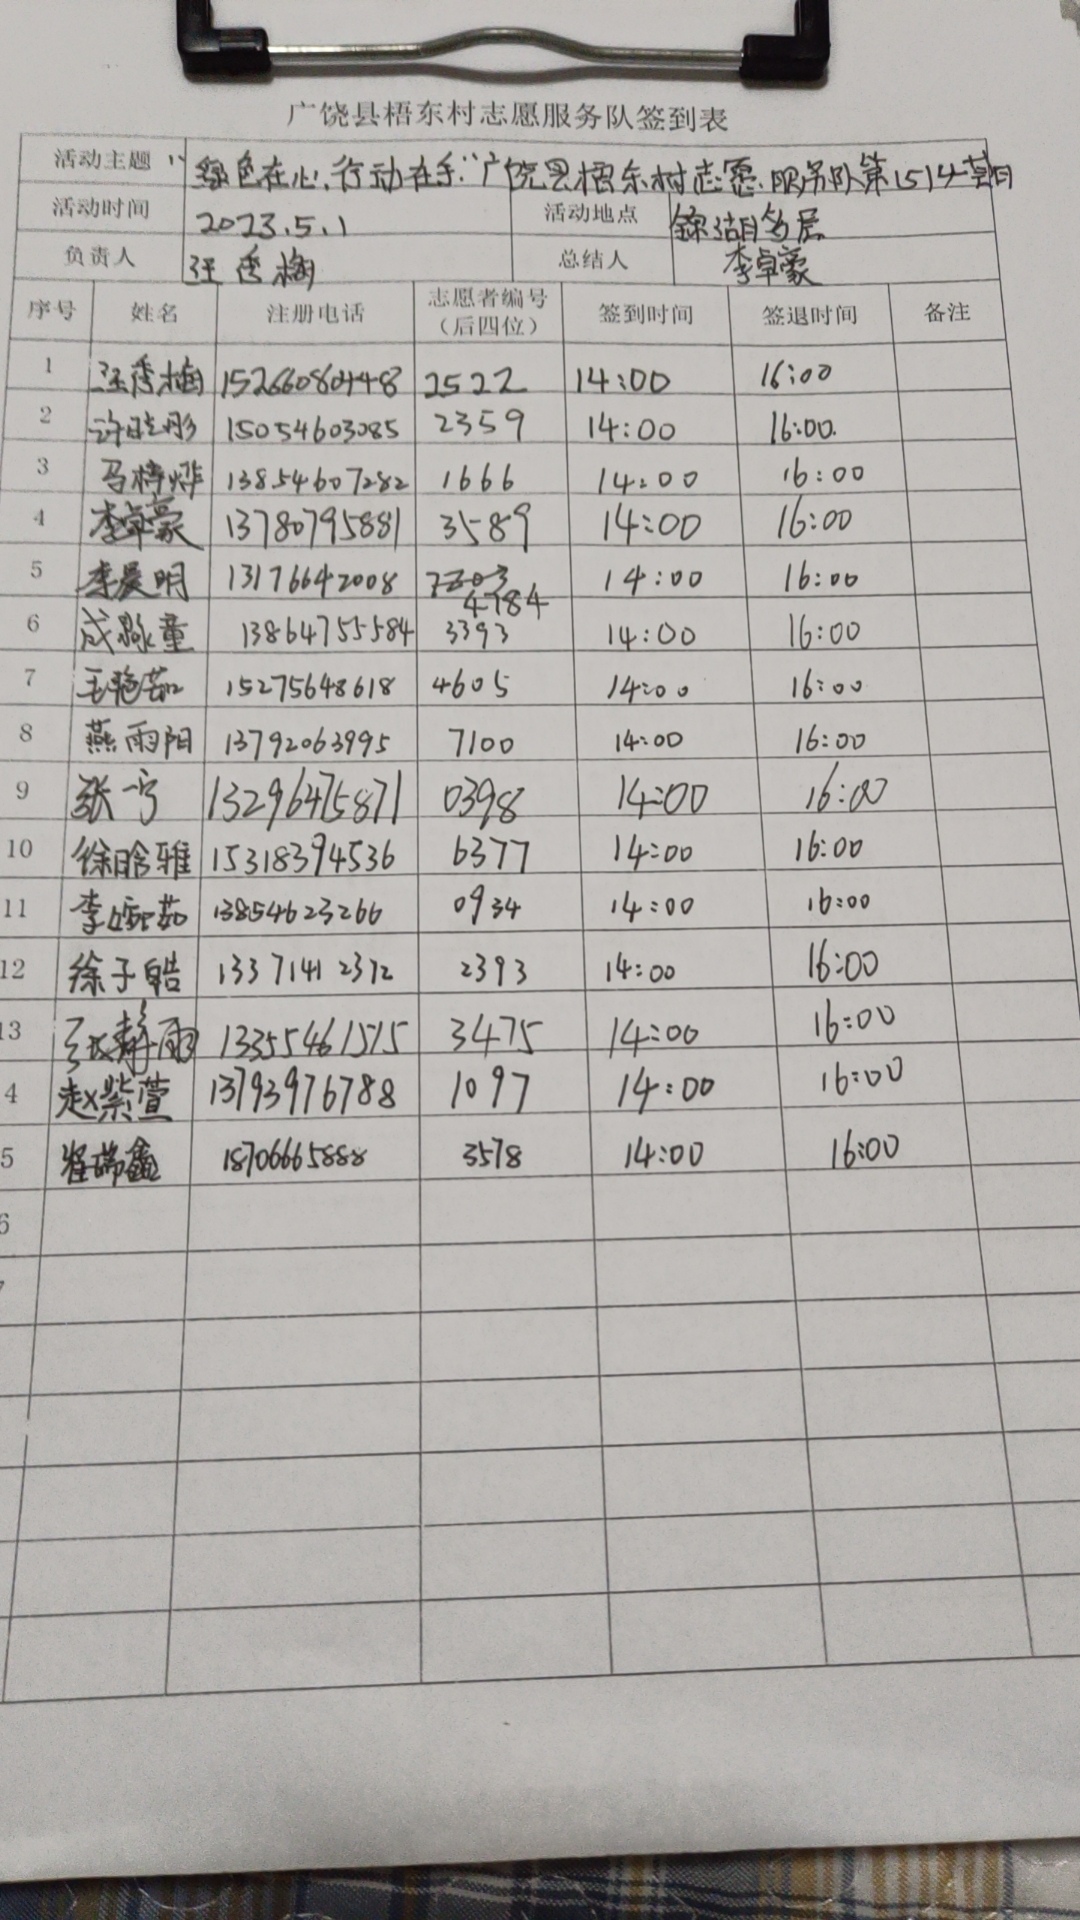 广饶县梧东村志愿服务队签到表
活动主题 "绿色在心,行动在手"广饶县梧东村志愿服务队第1514期
活动时间 2023.5.1 活动地点 锦湖多层
负责人 汪秀梅 总结人 李卓豪
序号 姓名 注册电话 志愿者编号（后四位） 签到时间 签退时间 备注
1 汪秀梅 15266080448 2522 14:00 16:00
2 许晓彤 15054603085 2359 14:00 16:00.
3 马梓烨 13854607282 1666 14:00 16:00
4 李卓豪 13780795881 3589 14:00 16:00
5 李晨明 13176642008 4784 14:00 16:00
6 成 童 13864755584 3393 14:00 16:00
7 王艳茹 15275648618 4605 14:00 16:00
8 燕雨阳 13792063995 7100 14:00 16:00
9 张宁 13296475871 0398 14:00 16:00
10 徐晗雅 15318394536 6377 14:00 16:00
11 李 茹 13854623266 0934 14:00 16:00
12 徐子皓 13371412372 2393 14:00 16:00
13 张静雨 13355461515 3475 14:00 16:00
4 赵紫萱 13793976788 1097 14:00 16:00
5 瑞鑫 18706665888 3578 14:00 16:00
6
7